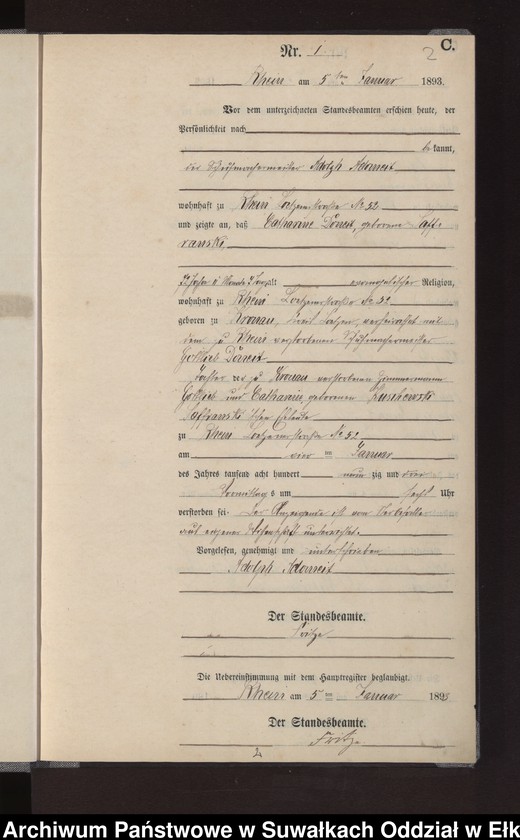 C.
2
Nr. 1
Rhein am 5ten Januar 1893.
Vor dem unterzeichneten Standesbeamten erschien heute, der
Persönlichkeit nach
bekannt,
der Schuhmachermeister Adolph Adomeit
wohnhaft zu Rhein Lötzenerstraße No 52
und zeigte an, daß Catharine Döneit, geborene Saff-
ranski
alt evangelischer Religion,
wohnhaft zu Rhein Lötzenerstraße No 52
geboren zu Kronau, Kreis Lötzen, verheirathet mit
dem zu Rhein verstorbenen Schuhmachermeister
Gottlieb Döneit
Tochter der zu Kronau verstorbenen Zimmermann
Gottlieb und Catharine, geborenen
Saffranski'schen Eheleute
zu Rhein Lötzenerstraße No 52
am vier ten Januar
des Jahres tausend acht hundert neunzig und drei
Vormittags um sechs Uhr
verstorben sei. Der Anzeigende ist vom Sterbefalle
aus eigener Wissenschaft unterrichtet.
Vorgelesen, genehmigt und unterschrieben
Adolph Adomeit
Der Standesbeamte.
Fritze
Die Uebereinstimmung mit dem Hauptregister beglaubigt.
Rhein am 5ten Januar 1893
Der Standesbeamte.
Fritze
Archiwum Państwowe w Suwałkach Oddział w Ełk